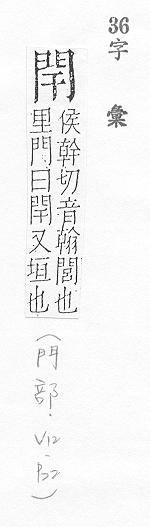 36字彙
閈
侯幹切音翰閭也
里門曰閈又垣也
(門部.V12-P32)